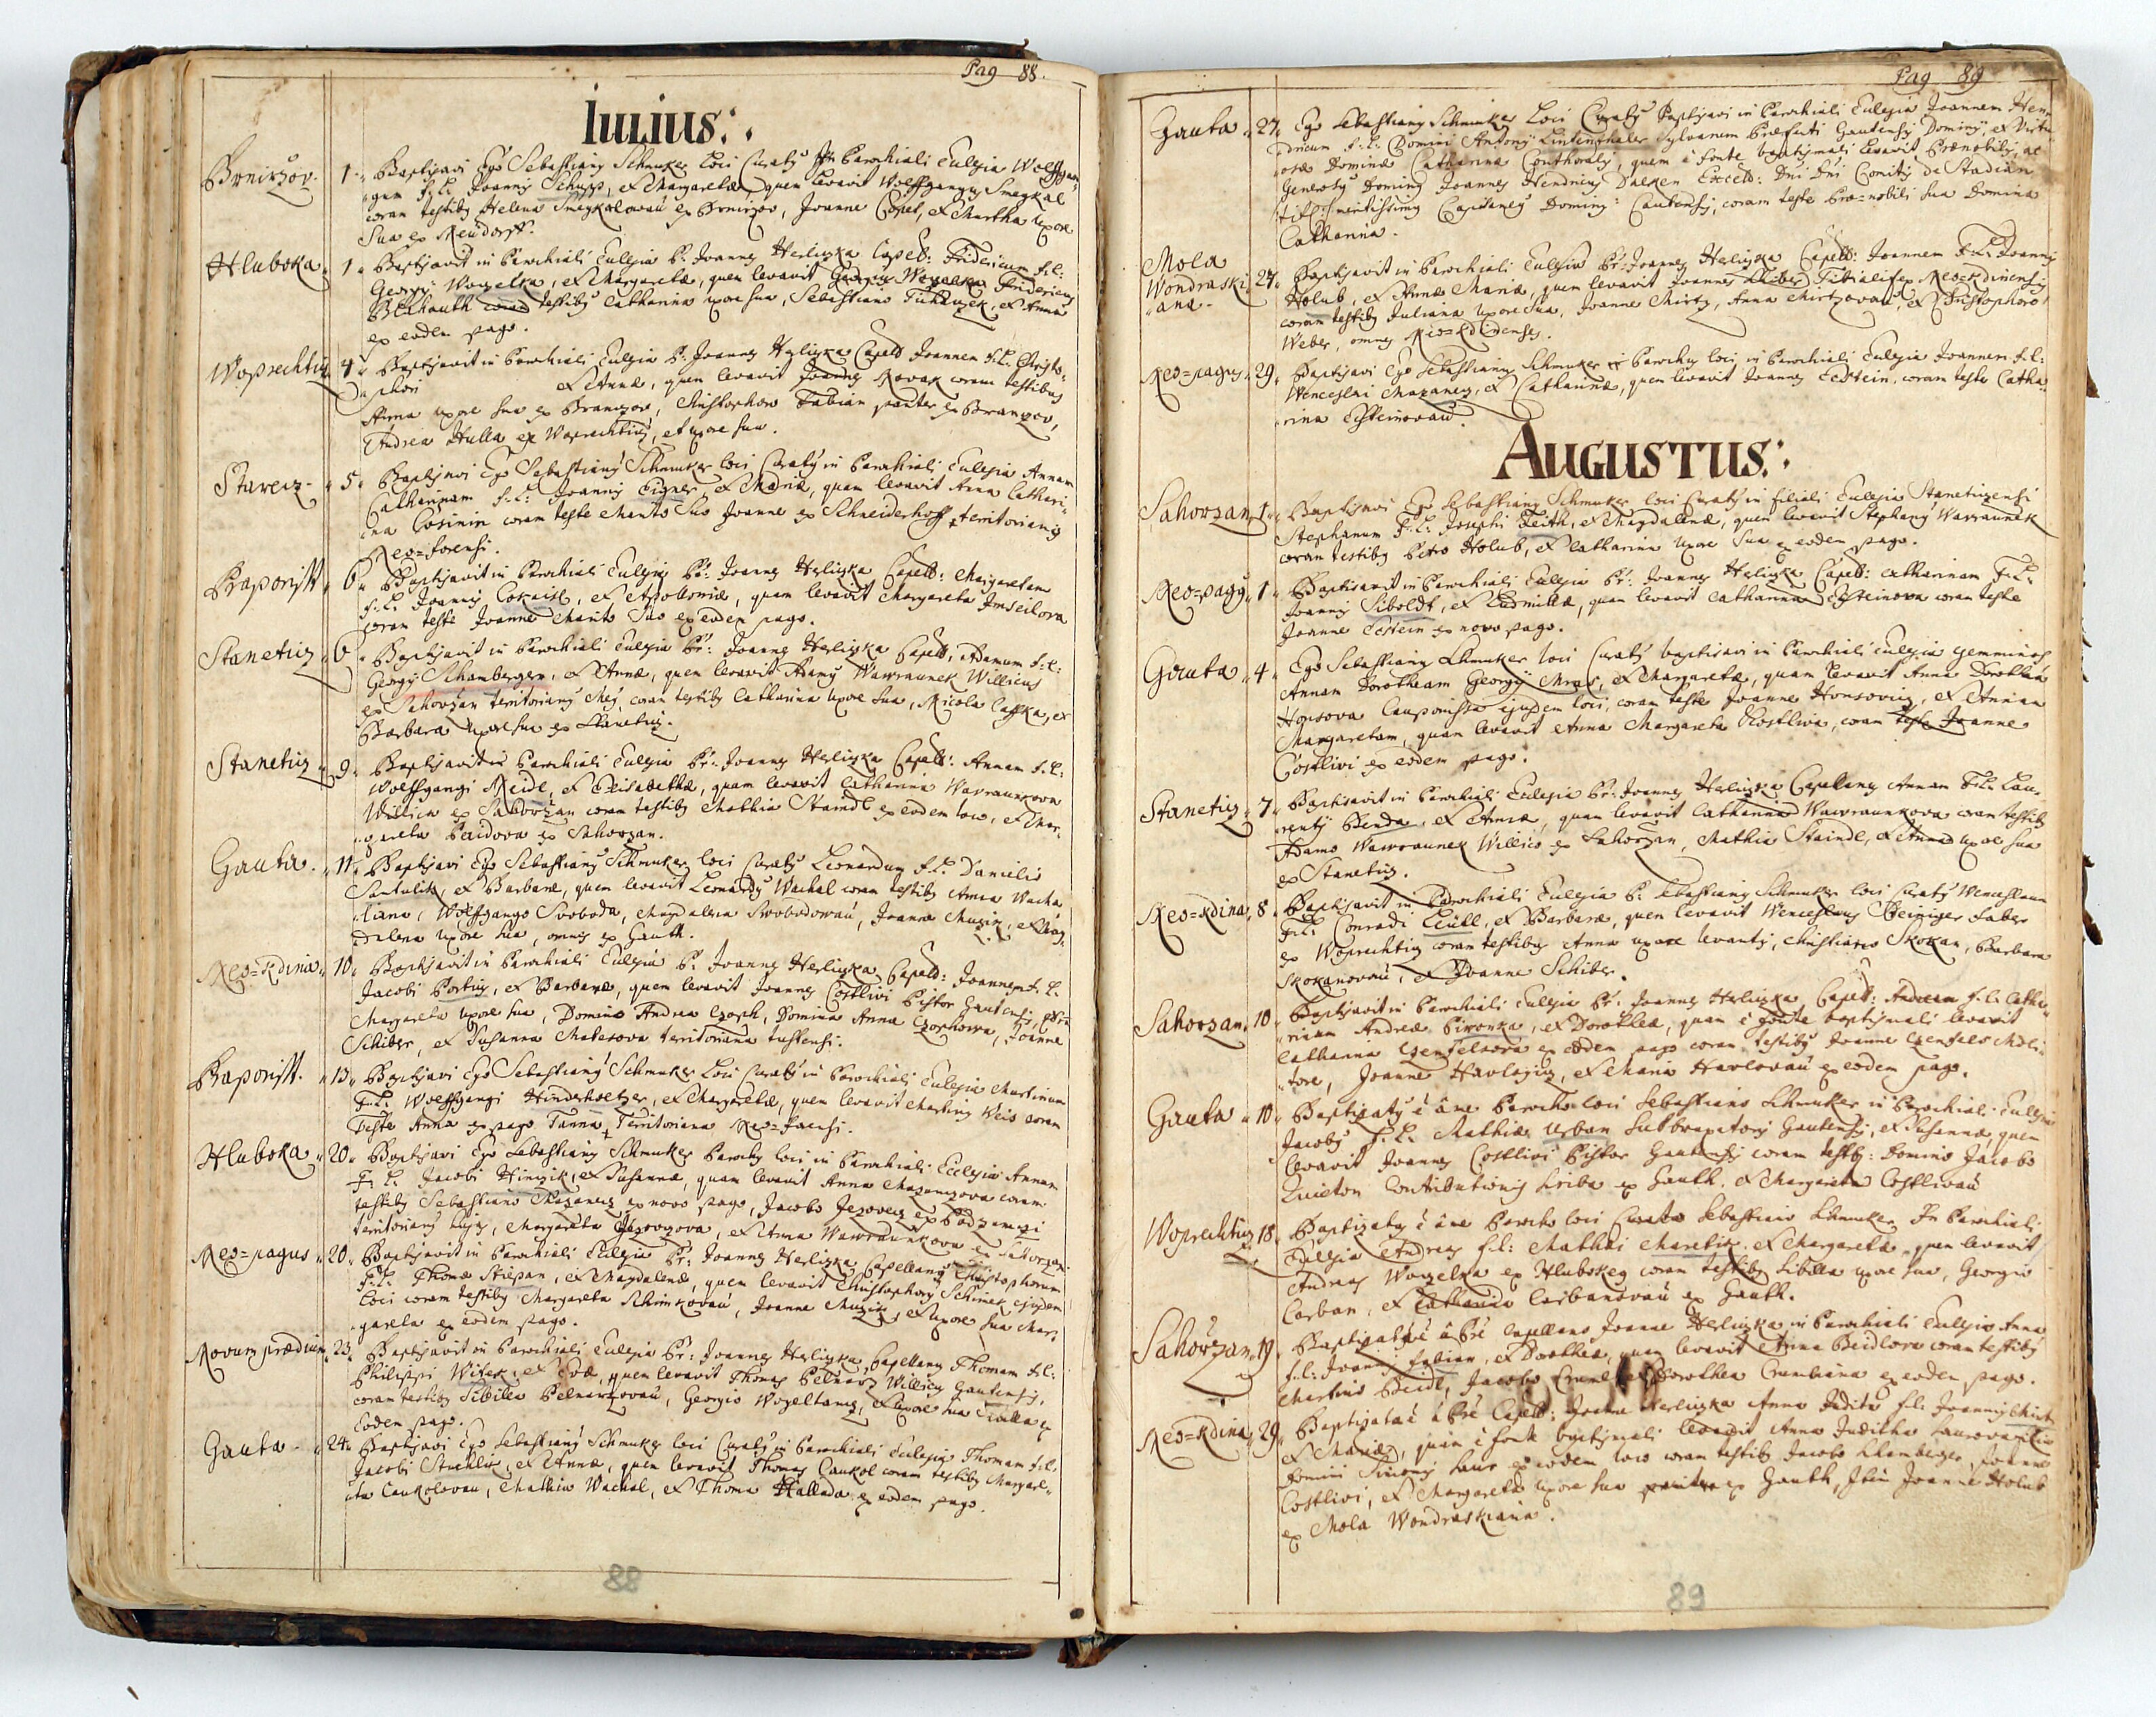 Pag 88.
Iulius:.
Brnirzov. 1. Baptizavi Ego Sebastiany Schmuker Loci Curatus in Parochiali Ecclesia Wolffgan-
gum f. L. Joannis Schupp, et Margaretae, quem levavit Wolffgangus Smeykal
coram testibus Helena Smeykalovau ex Brnirzov, Joanne Popel, et Martha uxore
sua ex Neudorff.
Hluboka. 1. Baptizavit in Parochiali Ecclesia P. Joannes Herlizka Capell: Fridericum f. L:
Georgii Wozelka, et Margaretae, quem levavit Fridericus
Blahauth coram testibus Catharina uxore sua, Sebastiano et Anna
ex eodem pago.
Woprechtiz 4. Baptizavit in Parochiali Ecclesia P. Joannes Herlizka Capell Joannem f. L. Christo-
phori et Annae, quem levavit Joannes Novak coram testibus
Anna uxore sua ex Branzov, Christophoro Fabian pariter ex Branzov,
Andrea Hulla ex Woprechtiz, et uxore sua.
Starecz. 5. Baptizavi Ego Sebastianus Schmuker loci Curatus in Parochiali Ecclesia Annam
Catharinam f. L: Joannis Eigner, et Maria, quam levavit Anna Cathari-
na Cosinin coram teste Marito Suo Joanne ex Schneiderhoff territorianis
Neo=forensi.
Paporist 6. Baptizavit in Parochiali Ecclesia Pr: Joannes Herlizka Capell: Margaretam
f. L. Joannis Cokaisl, et Apoloniae, quam levavit Margareta
coram teste Joanne Marito Suo ex eodem pago.
Stanetiz 6. Baptizavit in Parochiali Ecclesia Pr: Joannes Herlizka Capell, Adamum f. L:
Georgii Schamberger, et Annae, quem levavit Adamus Wawraunek Willicus
ex Sahorzan territorianus Chej, coram testibus Catharina uxore sua, Nicola Casska, et
Barbara uxore sua ex Stanetiz.
Stanetiz 9. Baptizavit in Parochiali Ecclesia Pr: Joannes Herlizka Capell: Annam f. L:
Wolffgangi Neidl, et Elisabethae, quam levavit Catharina Wawraunkova
Willica ex Sahorzan coram testibus Mathia Staindl ex eodem loco, et Mar-
gareta Beidlova ex Sahorzan.
Gauta. 11. Baptizavi Ego Sebastianus Schmuker loci Curatus Leonardum f. L. Danielis
et Barbarae, quem levavit Leonardus Wachal coram testibus Anna Wacha-
liana, Wolffgango Svoboda, Magdalena Swobodovau, Joanne Muzik, et Mag-
dalena uxore sua, omnes ex Gauth.
Neo=Kdina 10. Baptizavit in Parochiali Ecclesia P. Joannes Herlizka Capell: Joannem f. L.
Jacobi Portius, et Barbarae, quem levavit Joannes Costlivi Pistor Gautensis,
Margareta uxore sua, Domino Andrea Czoph, Domina Anna Czophova, Joanne
Schiber, et Susanna Matesova territoriana tustensi.
Paporist. 13. Baptizavi Ego Sebastianus Schmuker Loci Curatus in Parochiali Ecclesia Martinum
f. L. Wolffgangi Hinderholtzer, et Margaretae, quem levavit Martinus Weis coram
Teste Anna ex pago Tanna, Territoriana Neo=Forensi.
Hluboka 20. Baptizavi Ego Sebastianus Schmuker Parochus loci in Parochiali Ecclesia Annam
F. L. Jacobi Hinczik, et Susannae, quam levavit Anna Mazanczova coram
testibus Sebastiano Mazanecz ex novo pago, Jacobo Jezovecz ex Podzamczi
territorianus hujus, Margareta Jezovczova, et Anna Wawraunkova ex Sahorzan.
Neo=pagus 20. Baptizavit in Parochiali Ecclesia Pr: Joannes Herlizka Capellanus Christophorum
F. L. Thomae Stiepan, et Magdalenae, quem levavit Christophorus Schimek ejusdem
loci coram testibus Margareta Schimkovau, Joanne Muzik, et uxore sua Mar-
gareta ex eodem pago.
Novum praedium 23. Baptizavit in Parochiali Ecclesia Pr: Joannes Herlizka Capellanus Thomam f. L:
Philippi Witek, et Evae, quem levavit Thomas Pelnarz Willicus Gautensis,
coram testibus Sibilla Pelnarzovau, Georgio et uxore sua Sibilla ex
Eodem pago.
Gauta. 24. Baptizavi Ego Sebastianus Schmuker loci Curatus in Parochiali Ecclesia Thomam f. L:
Jacobi et Annae, quem levavit Thomas Caukol coram testibus Margare-
ta Caukolovau, Mathia Wachal, et Thoma Hallada ex eodem pago.
88
Pag 89
Gauta 27. Ego Sebastianus Schmuker Loci Curatus Baptizavi in Parochiali Ecclesia Joannem Hen-
dricum f. L: Domini Antonii Lintenthaler Sylvarum Praefecti Gautensis Dominii, et Virtu-
osae Dominae Catharinae Conthoralis, quem è fonte baptismali levavit Praenobilis, ac
Generosus Dominus Joannes Hendricus Dalken Excell: Dni Dni Comitis de Stadian
titl: Capitaneus Dominii Cautensis, coram teste Prae=nobili sua Domina
Catharina.
Mola Wondraski-ana. 27. Baptizavit in Parochiali Ecclesia Pr: Joannes Herlizka Capell: Joannem f. L: Joannis
Holub, et Annae Mariae, quem levavit Joannes Schiber ex Neo=Kdinensis
coram testibus Juliana uxore sua, Joanne Mirtz, Anna Mirtzovau, et Christophoro
Weber, omnes Neo=Kdinenses.
Neo=pagus 29. Baptizavi Ego Sebastianus Schmuker Parochus loci in Parochiali Ecclesia Joannem f. L:
Wenceslai Mazanecz, et Catharinae, quem levavit Joannes Eckstein, coram teste Catha-
rina Ecksteinovau.
Augustus:.
Sahorzan 1. Baptizavi Ego Sebastianus Schmuker loci Curatus in filiali Ecclesia Stanetizensi
Stephanum F. L: Josephi Zeith, et Magdalenae, quem levavit Stephanus Wawraunek
coram testibus Petro Holub, et Catharina uxore sua ex eodem pago.
Neo=pagus 1. Baptizavit in Parochiali Ecclesia Pr: Joannes Herlizka Capell: Catharinam F. L.
Joannis Siboldt, et Ludmillae, quam levavit Catharina Ecksteinova coram teste
Joanne Eckstein ex novo pago.
Gauta 4. Ego Sebastianus Schmuker loci Curatus baptizavi in Parochiali Ecclesia gemminos
Annam Dorotheam Georgii Mras, et Margaretae, quam levavit Anna Dorothea
Honsova Cauponissa ejusdem loci, coram teste Joanne et Annam
Margaretam, quam levavit Anna Margareta Costlivá, coram teste Joanne
Costlivi ex eodem pago.
Stanetiz 7. Baptizavit in Parochiali Ecclesia Pr: Joannes Herlizka Capellanus Annam F. L. Lau-
rentii Benda, et Annae, quam levavit Catharina Wawraunkova coram testibus
Adamo Wawraunek Willico ex Sahorzan, Mathia Staindl, et Anna uxore sua
ex Stanetiz.
Neo=Kdina 8. Baptizavit in Parochiali Ecclesia P. Sebastianus Schmuker loci Curatus Wenceslaum
F. L. Conradi et Barbarae, quem levavit Wenceslaus Faber
ex Woprechtiz coram testibus Anna uxore levantis, Christiano Skokan, Barbara
Skokanovau, et Joanne Schiber.
Sahorzan 10. Baptizavit in Parochiali Ecclesia Pr: Joannes Herlizka Capell: f. L. Catha-
rinam Andreae Pivonka, et Dorotheae, quam è fonte baptismali levavit
Catharina ex eodem pago coram testibus Joanne Moli-
tore, Joanne et Maria Havlovau ex eodem pago.
Gauta 10. Baptizatus è á me Parocho loci Sebastiano Schmuker in Parochiali Ecclesia
Jacobus F. L. Mathiae Urban Gautensis, et Susannae, quem
levavit Joannes Costlivi Pistor Gautensis coram testibus: Domino Jacobo
Contributionis Scriba ex Gauth, et Margareta Costlivau
Woprechtiz 18. Baptizatus è á me Parocho loci Curato Sebastiano Schmuker In Parochiali
Ecclesia Andreas f. L: Mathai et Margaretae, quem levavit
Andreas Wozelka ex Hlubokey coram testibus Sibilla uxore sua, Georgio
Carban, et Catharina Carbanovau ex Gauth.
Sahorzan 19. Baptizata è á Pre Capellano Joanne Herlizka in Parochiali Ecclesia Anna
f. L: Joannis Fabian, et Dorotheae, quam levavit Anna Beidlova coram testibus
Martino Beidl, Jacobo et Dorothea ex eodem pago.
Neo=Kdina 29. Baptizata è á Pre Capell: Joanne Herlizka Anna Judita f. L. Joannis Mirtz
et Mariae, quam è fonte baptismali levavit Anna Juditha
Domini ex eodem loco coram testibus Jacobo Schamberger, Joanne
Costlivi, et Margareta uxore sua ex Gauth, Item Joanne Holub
ex Mola Wondraskiana.
89